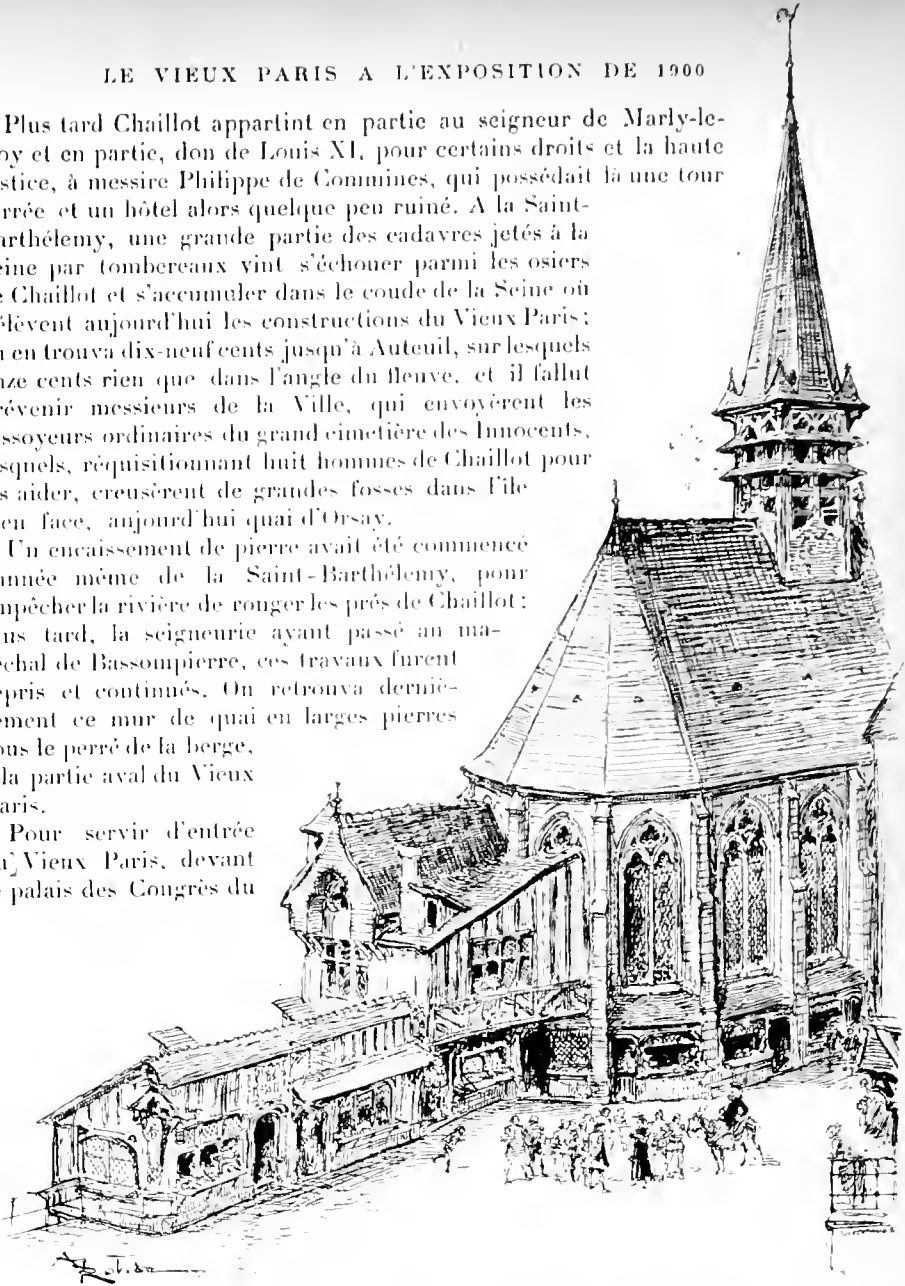 LE VIEUX PARIS A L'EXPOSITION DE 1900
Plus tard Chaillot appartint en partie au seigneur de Marly-le-
oy et en partie, don de Louis XI, pour certains droits et la haute
stice, à messire Philippe de Commines, qui possédait là une tour
rrée et un hôtel alors quelque peu ruiné. A la Saint-
arthélemy, une grande partie des cadavres jetés à la
eine par tombereaux vint s'échouer parmi les osiers
e Chaillot et s'accumuler dans le coude de la Seine où
élèvent aujourd'hui les constructions du Vieux Paris;
n en trouva dix-neuf cents jusqu'à Auteuil, sur lesquels
nze cents rien que dans l'angle du fleuve, et il fallut
révenir messieurs de la Ville, qui envoyèrent les
ssoyeurs ordinaires du grand cimetière des Innocents,
squels, réquisitionnant huit hommes de Chaillot pour
s aider, creusèrent de grandes fosses dans l'île
en face, aujourd'hui quai d'Orsay.
Un encaissement de pierre avait été commencé
année même de la Saint-Barthélemy, pour
mpêcher la rivière de ronger les prés de Chaillot;
us tard, la seigneurie ayant passé au ma-
échal de Bassompierre, ces travaux furent
epris et continués. On retrouva derniè-
ement ce mur de quai en larges pierres
ous le perré de la berge,
la partie aval du Vieux
aris.
Pour servir d'entrée
u Vieux Paris, devant
e palais des Congrès du
A Robida